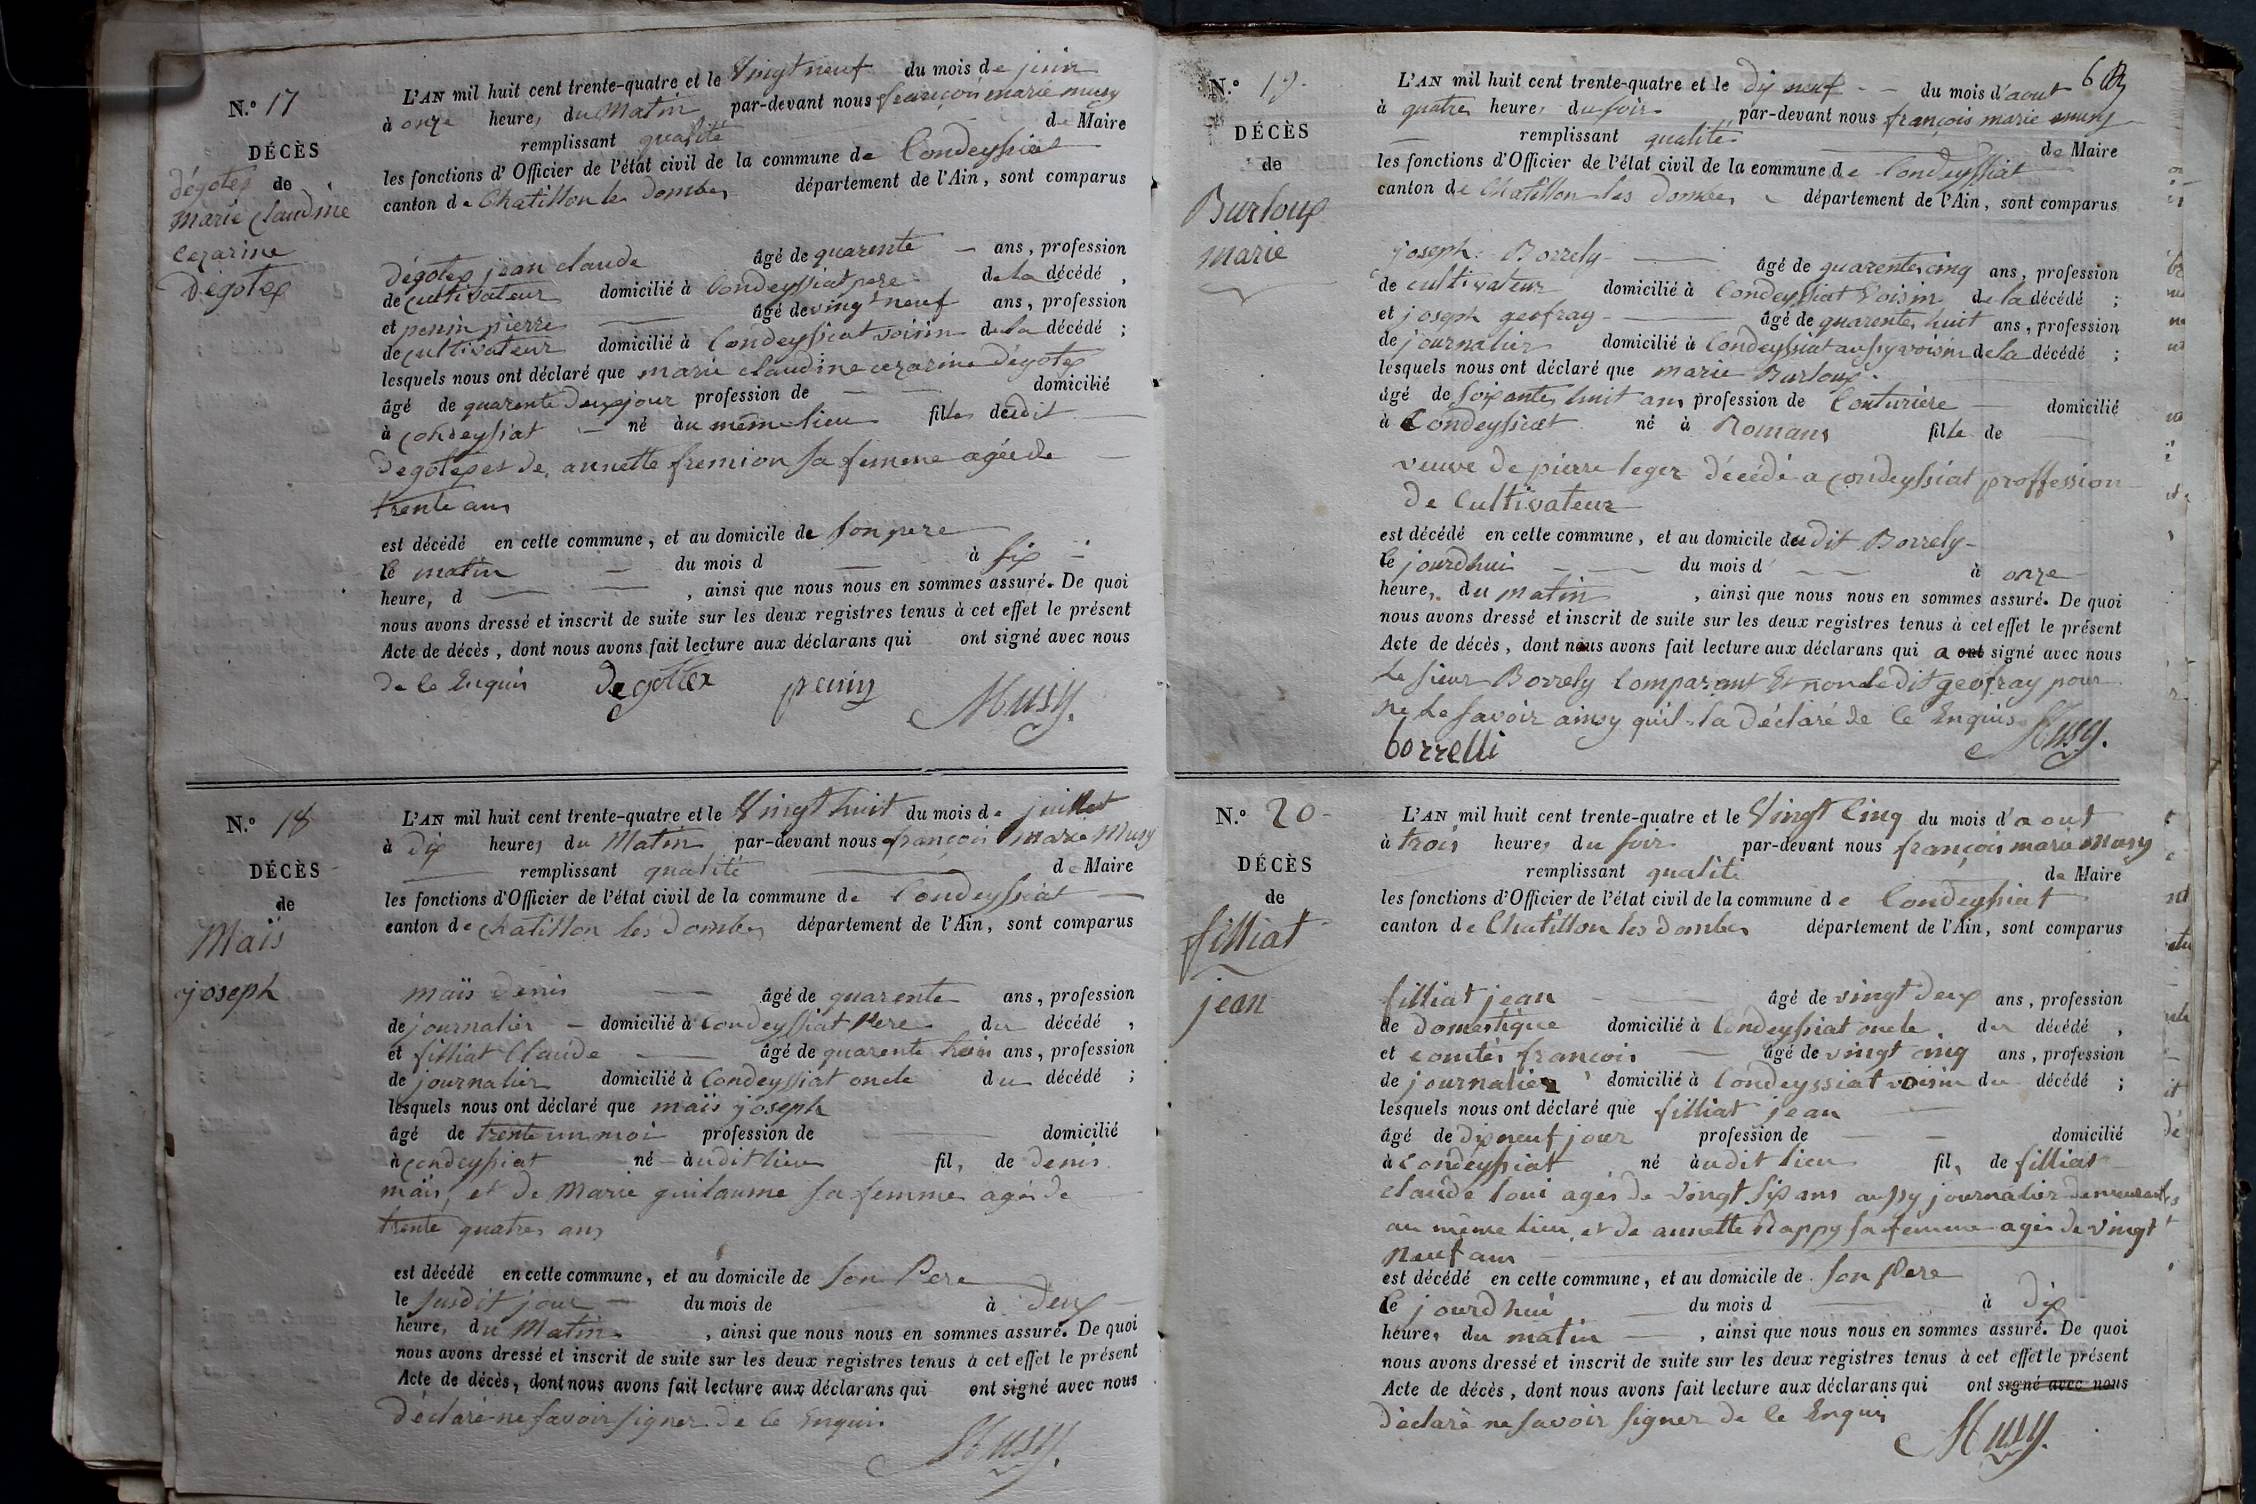 N.° 17
DÉCÈS
dégotex de
marie claudine
cezarine
Dégotex
L'AN mil huit cent trente-quatre et le Vingt neuf du mois de juin
à onze heures du Matin par-devant nous françois marie musy
remplissant qualité de Maire
les fonctions d'Officier de l'état civil de la commune de Condeyssiat
canton de Chatillon les Dombes département de l'Ain, sont comparus
Dégotex jean claude âgé de quarente ans, profession
de cultivateur domicilié à Condeyssiat pere de la décédé,
et penin pierre âgé de vingt neuf ans, profession
de cultivateur domicilié à Condeyssiat voisin de la décédé;
lesquels nous ont déclaré que marie claudine cezarine Dégotex
âgé de quarente deux jour profession de domicilié
à Condeyssiat né au même lieu fille dudit
Degotex et de annette fremion sa femme agée de
trente ans
est décédé en cette commune, et au domicile de son pere
le matin du mois d à six
heure, d , ainsi que nous nous en sommes assuré. De quoi
nous avons dressé et inscrit de suite sur les deux registres tenus à cet effet le présent
Acte de décès, dont nous avons fait lecture aux déclarans qui ont signé avec nous
de ce Enquis Degottex penin Musy.
N.° 18
DÉCÈS
de
Maïs
joseph
L'AN mil huit cent trente-quatre et le Vingt huit du mois de juillet
à dix heures du Matin par-devant nous françois marie Musy
remplissant qualité de Maire
les fonctions d'Officier de l'état civil de la commune de Condeyssiat
canton de chatillon les dombes département de l'Ain, sont comparus
maïs denis âgé de quarente ans, profession
de journalier domicilié à Condeyssiat Pere du décédé,
et filliat Claude âgé de quarente trois ans, profession
de journalier domicilié à Condeyssiat oncle du décédé;
lesquels nous ont déclaré que maïs joseph
âgé de trente un moi profession de domicilié
à condeyssiat né audit lieu fils de denis
maïs, et de Marie guilaume sa femme agés de
trente quatres ans
est décédé en cette commune, et au domicile de son Pere
le susdit jour du mois de à deux
heures du Matin , ainsi que nous nous en sommes assuré. De quoi
nous avons dressé et inscrit de suite sur les deux registres tenus à cet effet le présent
Acte de décès, dont nous avons fait lecture aux déclarans qui ont signé avec nous
déclaré ne savoir signer de ce Enquis
Musy.
6
N.° 19
DÉCÈS
de
Burloup
marie
L'AN mil huit cent trente-quatre et le dix neuf du mois d'aout
à quatre heures du soir par-devant nous françois marie musy
remplissant qualité de Maire
les fonctions d'Officier de l'état civil de la commune de Condeyssiat
canton de Chatillon les Dombes département de l'Ain, sont comparus
joseph Borrely âgé de quarente cinq ans, profession
de cultivateur domicilié à Condeyssiat voisin de la décédé;
et joseph geofray âgé de quarente huit ans, profession
de journalier domicilié à Condeyssiat aussy voisin de la décédé;
lesquels nous ont déclaré que marie Burloup
âgé de soixante huit ans profession de Couturière domicilié
à Condeyssiat né à Romans fille de
veuve de pierre leger décédé a condeyssiat proffession
de Cultivateur
est décédé en cette commune, et au domicile dudit Borrely
le jourdhui du mois d à onze
heures du matin , ainsi que nous nous en sommes assuré. De quoi
nous avons dressé et inscrit de suite sur les deux registres tenus à cet effet le présent
Acte de décès, dont nous avons fait lecture aux déclarans qui a ont signé avec nous
Le sieur Borrely Comparant Et non ledit geofray pour
ne Le savoir ainsy qu'il la déclaré de ce Enquis
borrelli Musy.
N.° 20
DÉCÈS
de
filliat
jean
L'AN mil huit cent trente-quatre et le Vingt Cinq du mois d'aout
à trois heures du soir par-devant nous françois marie Musy
remplissant qualité de Maire
les fonctions d'Officier de l'état civil de la commune de Condeyssiat
canton de Chatillon les Dombes département de l'Ain, sont comparus
filliat jean âgé de vingt deux ans, profession
de domestique domicilié à Condeyssiat oncle du décédé,
et comtés francois âgé de vingt cinq ans, profession
de journalier domicilié à Condeyssiat voisin du décédé;
lesquels nous ont déclaré que filliat jean
âgé de dix neuf jour profession de domicilié
à Condeyssiat né audit lieu fils de filliat
claude loui agés de vingt six ans aussy journalier demeurant
au même lieu, et de annette Rappy sa femme agés de vingt
neuf ans
est décédé en cette commune, et au domicile de son Pere
le jourdhui du mois d à dix
heures du matin , ainsi que nous nous en sommes assuré. De quoi
nous avons dressé et inscrit de suite sur les deux registres tenus à cet effet le présent
Acte de décès, dont nous avons fait lecture aux déclarans qui ont signé avec nous
déclaré ne savoir signer de ce Enquis
Musy.